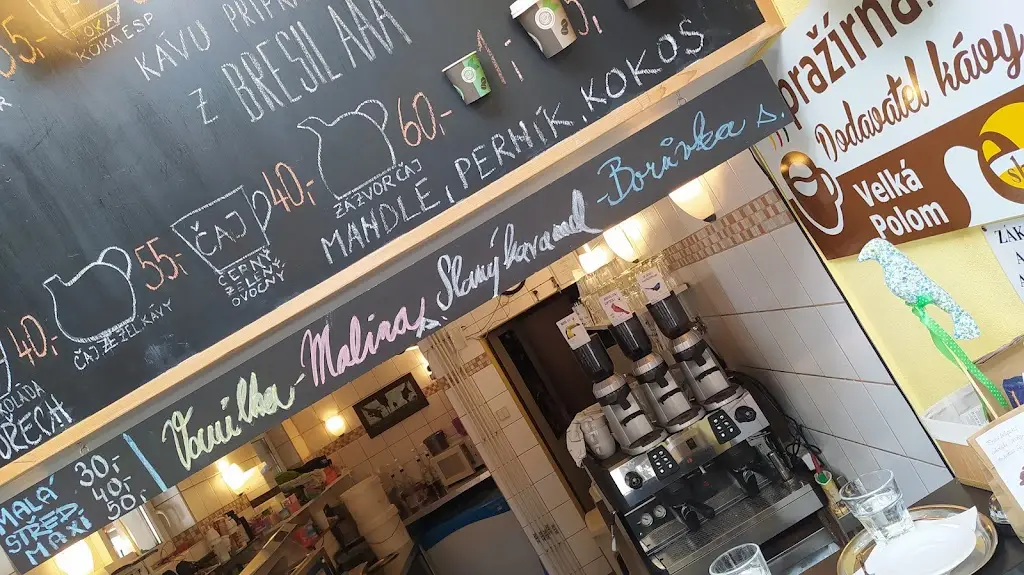 55,-
KÓKA ESP
KÁVU PŘIPR
Z BRESIL AAA
1,-
5,-
40,-
ČAJ ZE ZEL.KÁVY
55,-
ČAJ
ČERNÝ
ZELENÝ
OVOCNÝ
40,-
ZÁZVOR ČAJ
60,-
MANDLE, PERNÍK, KOKOS
OŘECH
MALÁ 30,-
STŘED. 40,-
MAXI 50,-
Vanilka - Malina s. Slaný karamel - Borůvka s.
pražírna
Dodavatel kávy
Velká
Polom
ZÁK